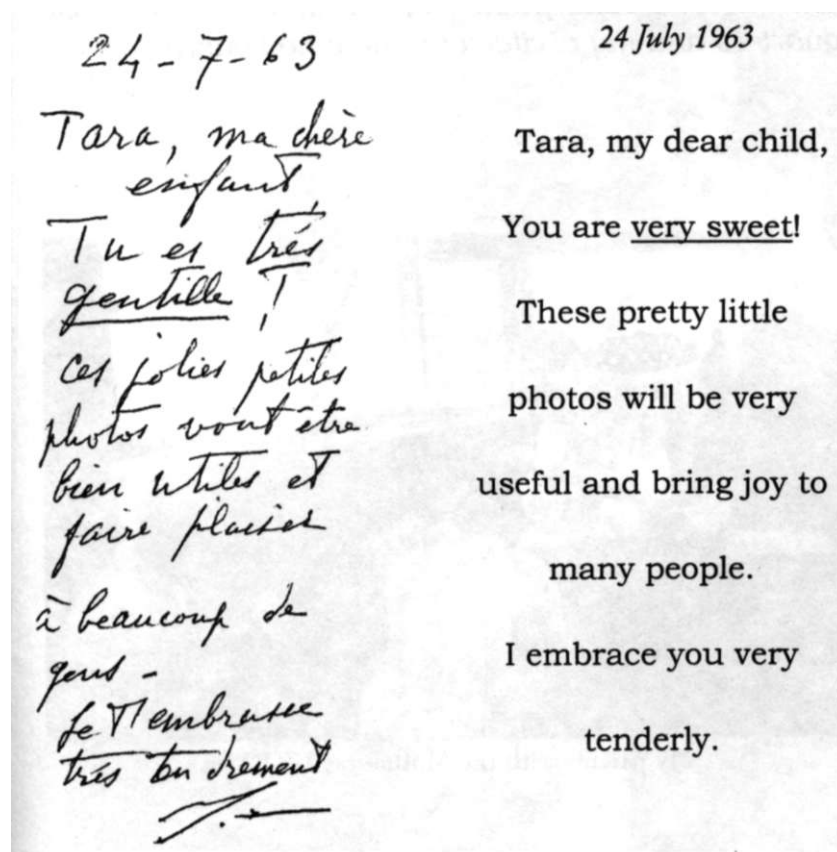 24-7-63
Tara, ma chère
enfant,
Tu es très
gentille !
ces jolies petites
photos vont être
bien utiles et
faire plaisir
à beaucoup de
gens -
Je T'embrasse
très tendrement
24 July 1963
Tara, my dear child,
You are very sweet!
These pretty little
photos will be very
useful and bring joy to
many people.
I embrace you very
tenderly.